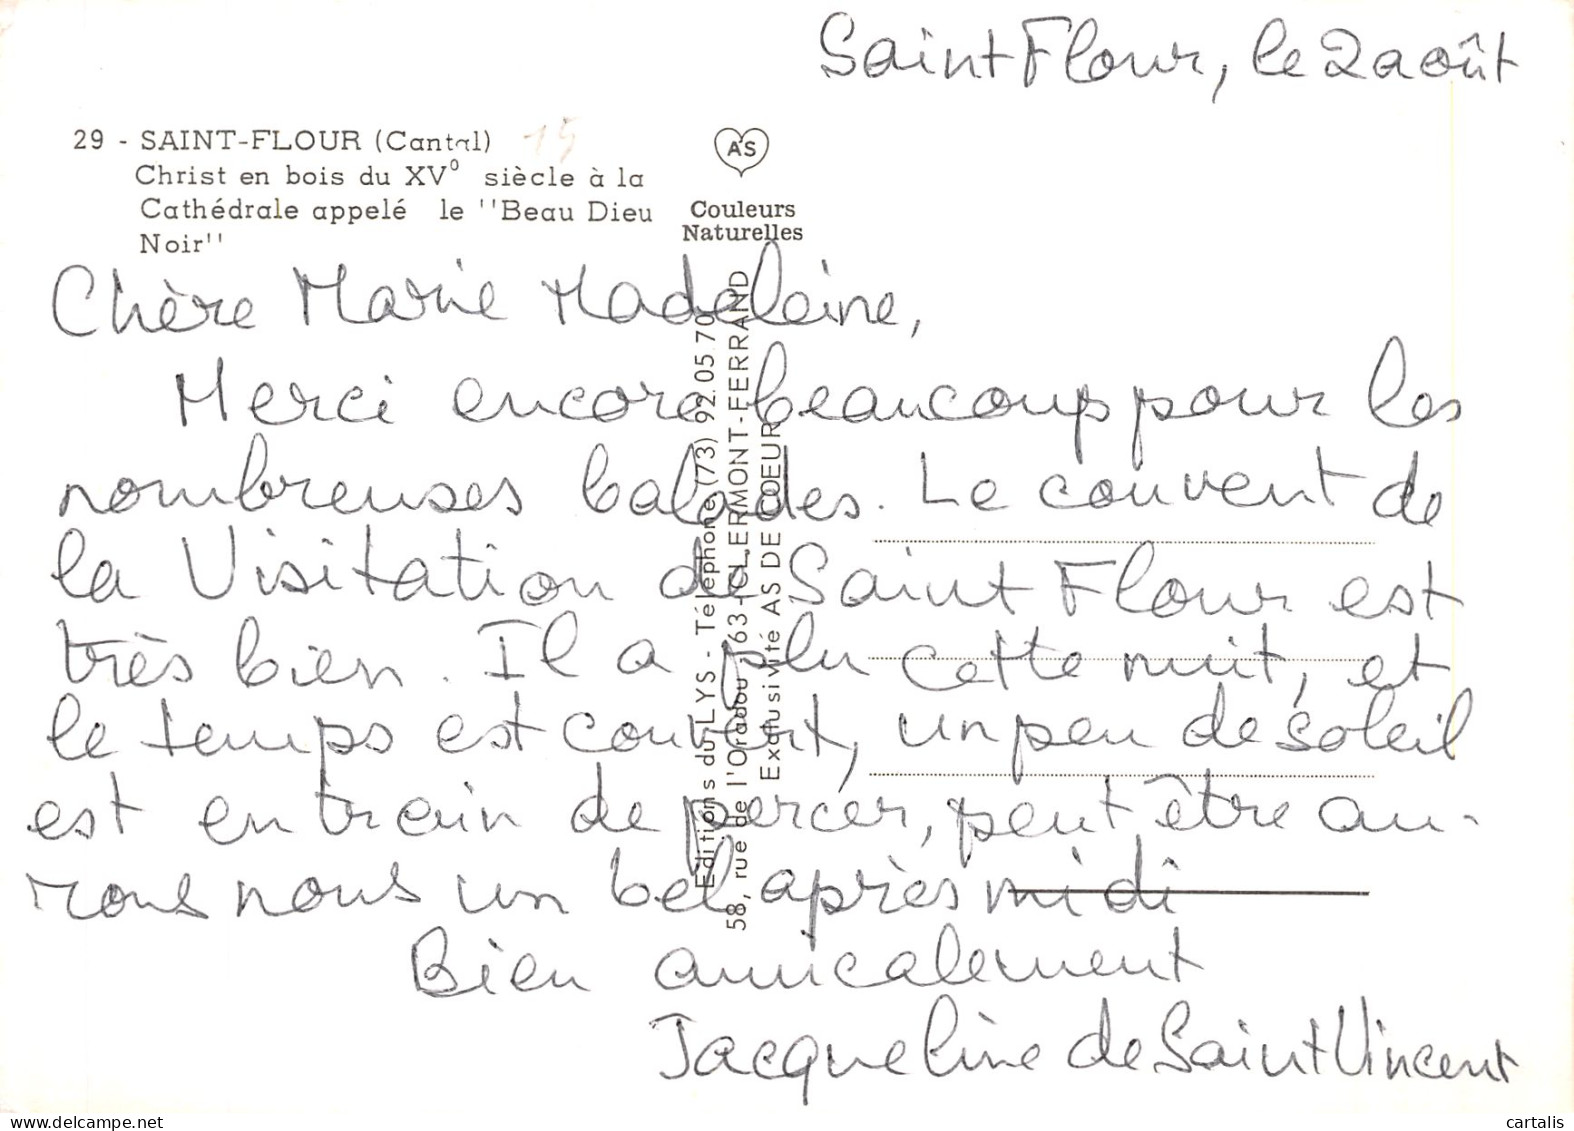 Saint Flour, le 2 août
29 - SAINT-FLOUR (Cantal)
15
Christ en bois du XV° siècle à la
Cathédrale appelé le ''Beau Dieu
Noir''
AS
Couleurs
Naturelles
Chère Marie Madeleine,
Merci encore beaucoup pour les
nombreuses balades. Le couvent de
la Visitation de Saint Flour est
très bien. Il a plu cette nuit, et
le temps est couvert, un peu de soleil
est en train de percer, peut être au-
rons nous un bel après midi
Bien amicalement
Jacqueline de Saint Vincent
Editions du LYS - Téléphone (73) 92.05.70
58, rue de l'Oradou - 63-CLERMONT-FERRAND
Exclusivité AS DE COEUR
delcampe.net
cartalis